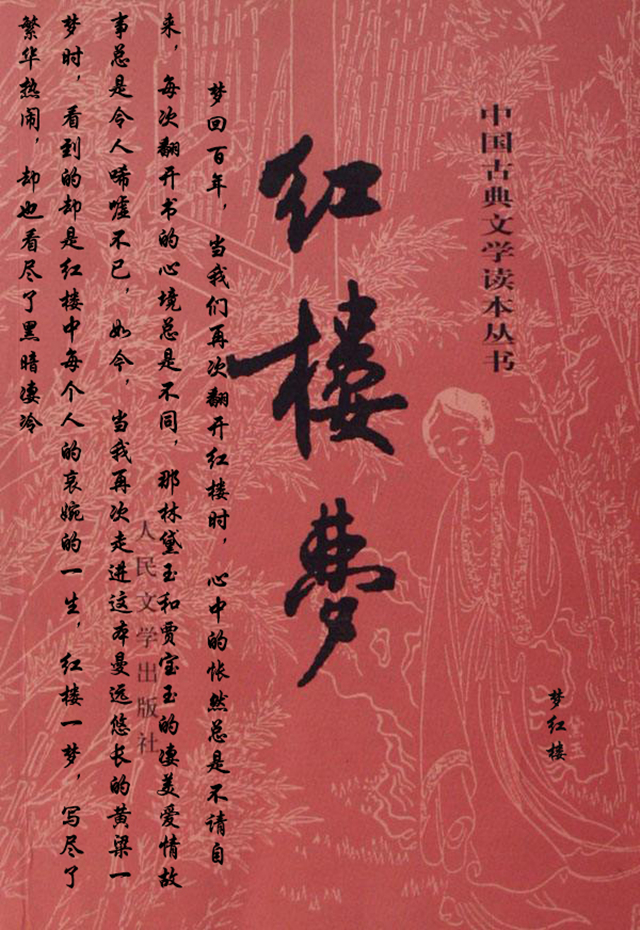 中国古典文学读本丛书
红楼梦
梦红楼
黛玉
梦回百年，当我们再次翻开红楼时，心中的怅然总是不请自
来，每次翻开书的心境总是不同，那林黛玉和贾宝玉的凄美爱情故
事总是令人唏嘘不已，如今，当我再次走进这本曼远悠长的黄梁一
梦时，看到的却是红楼中每个人的哀婉的一生，红楼一梦，写尽了
繁华热闹，却也看尽了黑暗凄冷
人民文学出版社